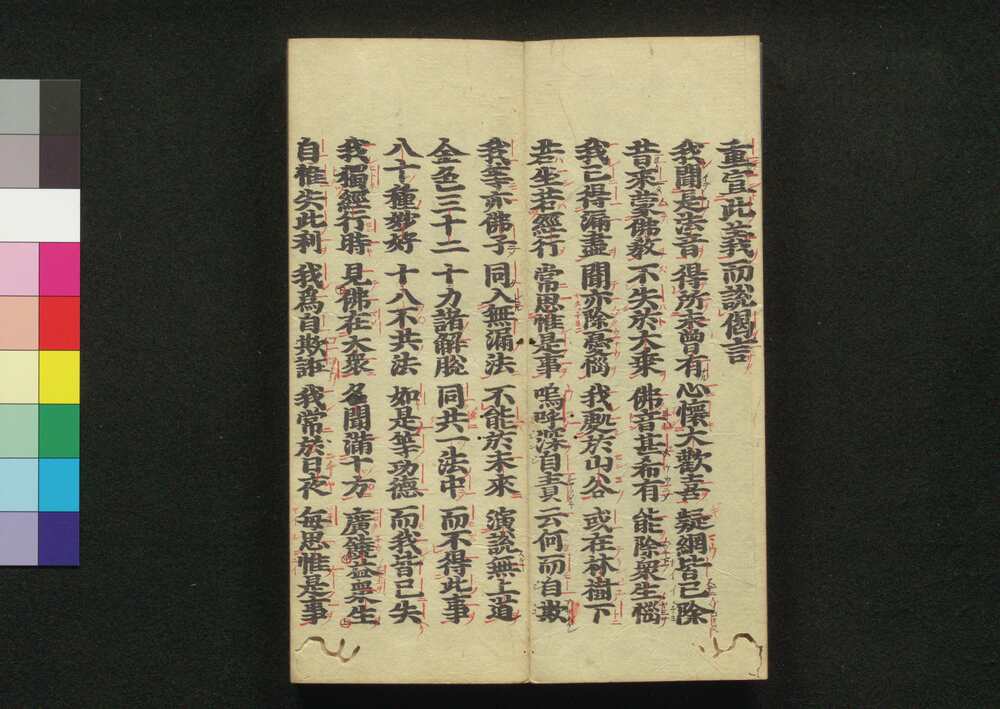 重宣此義而說偈言
我聞是法音 得所未曾有 心懷大歡喜 疑網皆已除
昔来蒙佛教 不失於大乗 佛音甚希有 能除衆生惱
我已得漏盡 聞亦除憂惱 我處於山谷 或在林樹下
若坐若經行 常思惟是事 嗚呼深自責 云何而自欺
我等亦佛子 同入無漏法 不能於未來 演説無上道
金色三十二 十力諸解脫 同共一法中 而不得此事
八十種妙好 十八不共法 如是等功德 而我皆已失
我獨經行時 見佛在大衆 名聞滿十方 廣饒益衆生
自惟失此利 我為自欺誑 我常於日夜 每思惟是事